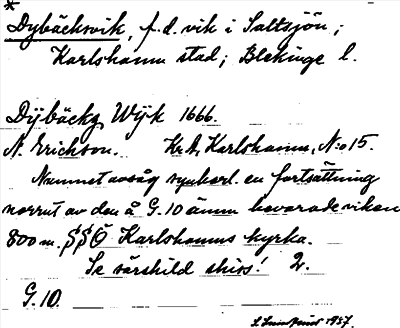 *
Dybäcksvik, f.d. vik i Saltsjön;
Karlshamn stad; Blekinge l.
Dÿbäckz Wijk 1666.
N. Erichson. Kr.A, Karlshamn, N:o 15.
Namnet avsåg synberl. en fortsättning
norrut av den å G. 10 ännu bevarade viken
800 m. SSÖ Karlshamns kyrka.
Se särskild skiss! 2.
G. 10.
1957.